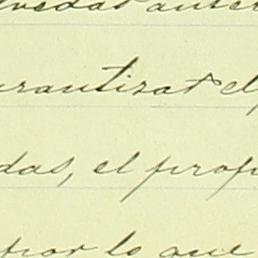 vedad anter
arantizar el
das, el prop
por lo que